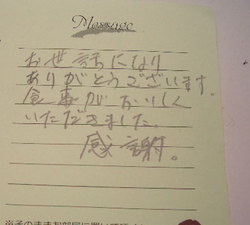 Message
お世話になり
ありがとうございます。
食事がおいしく
いただきました。
感謝。